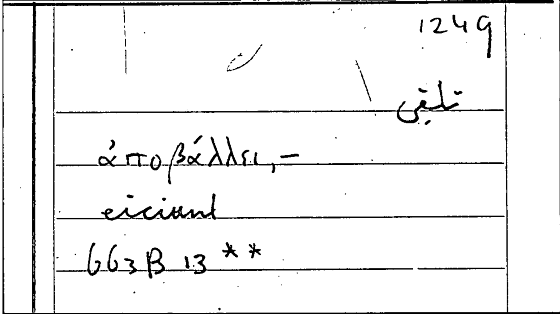 1249
تلقى
ἀποβάλλει,–
eiciunt
663B 13 **